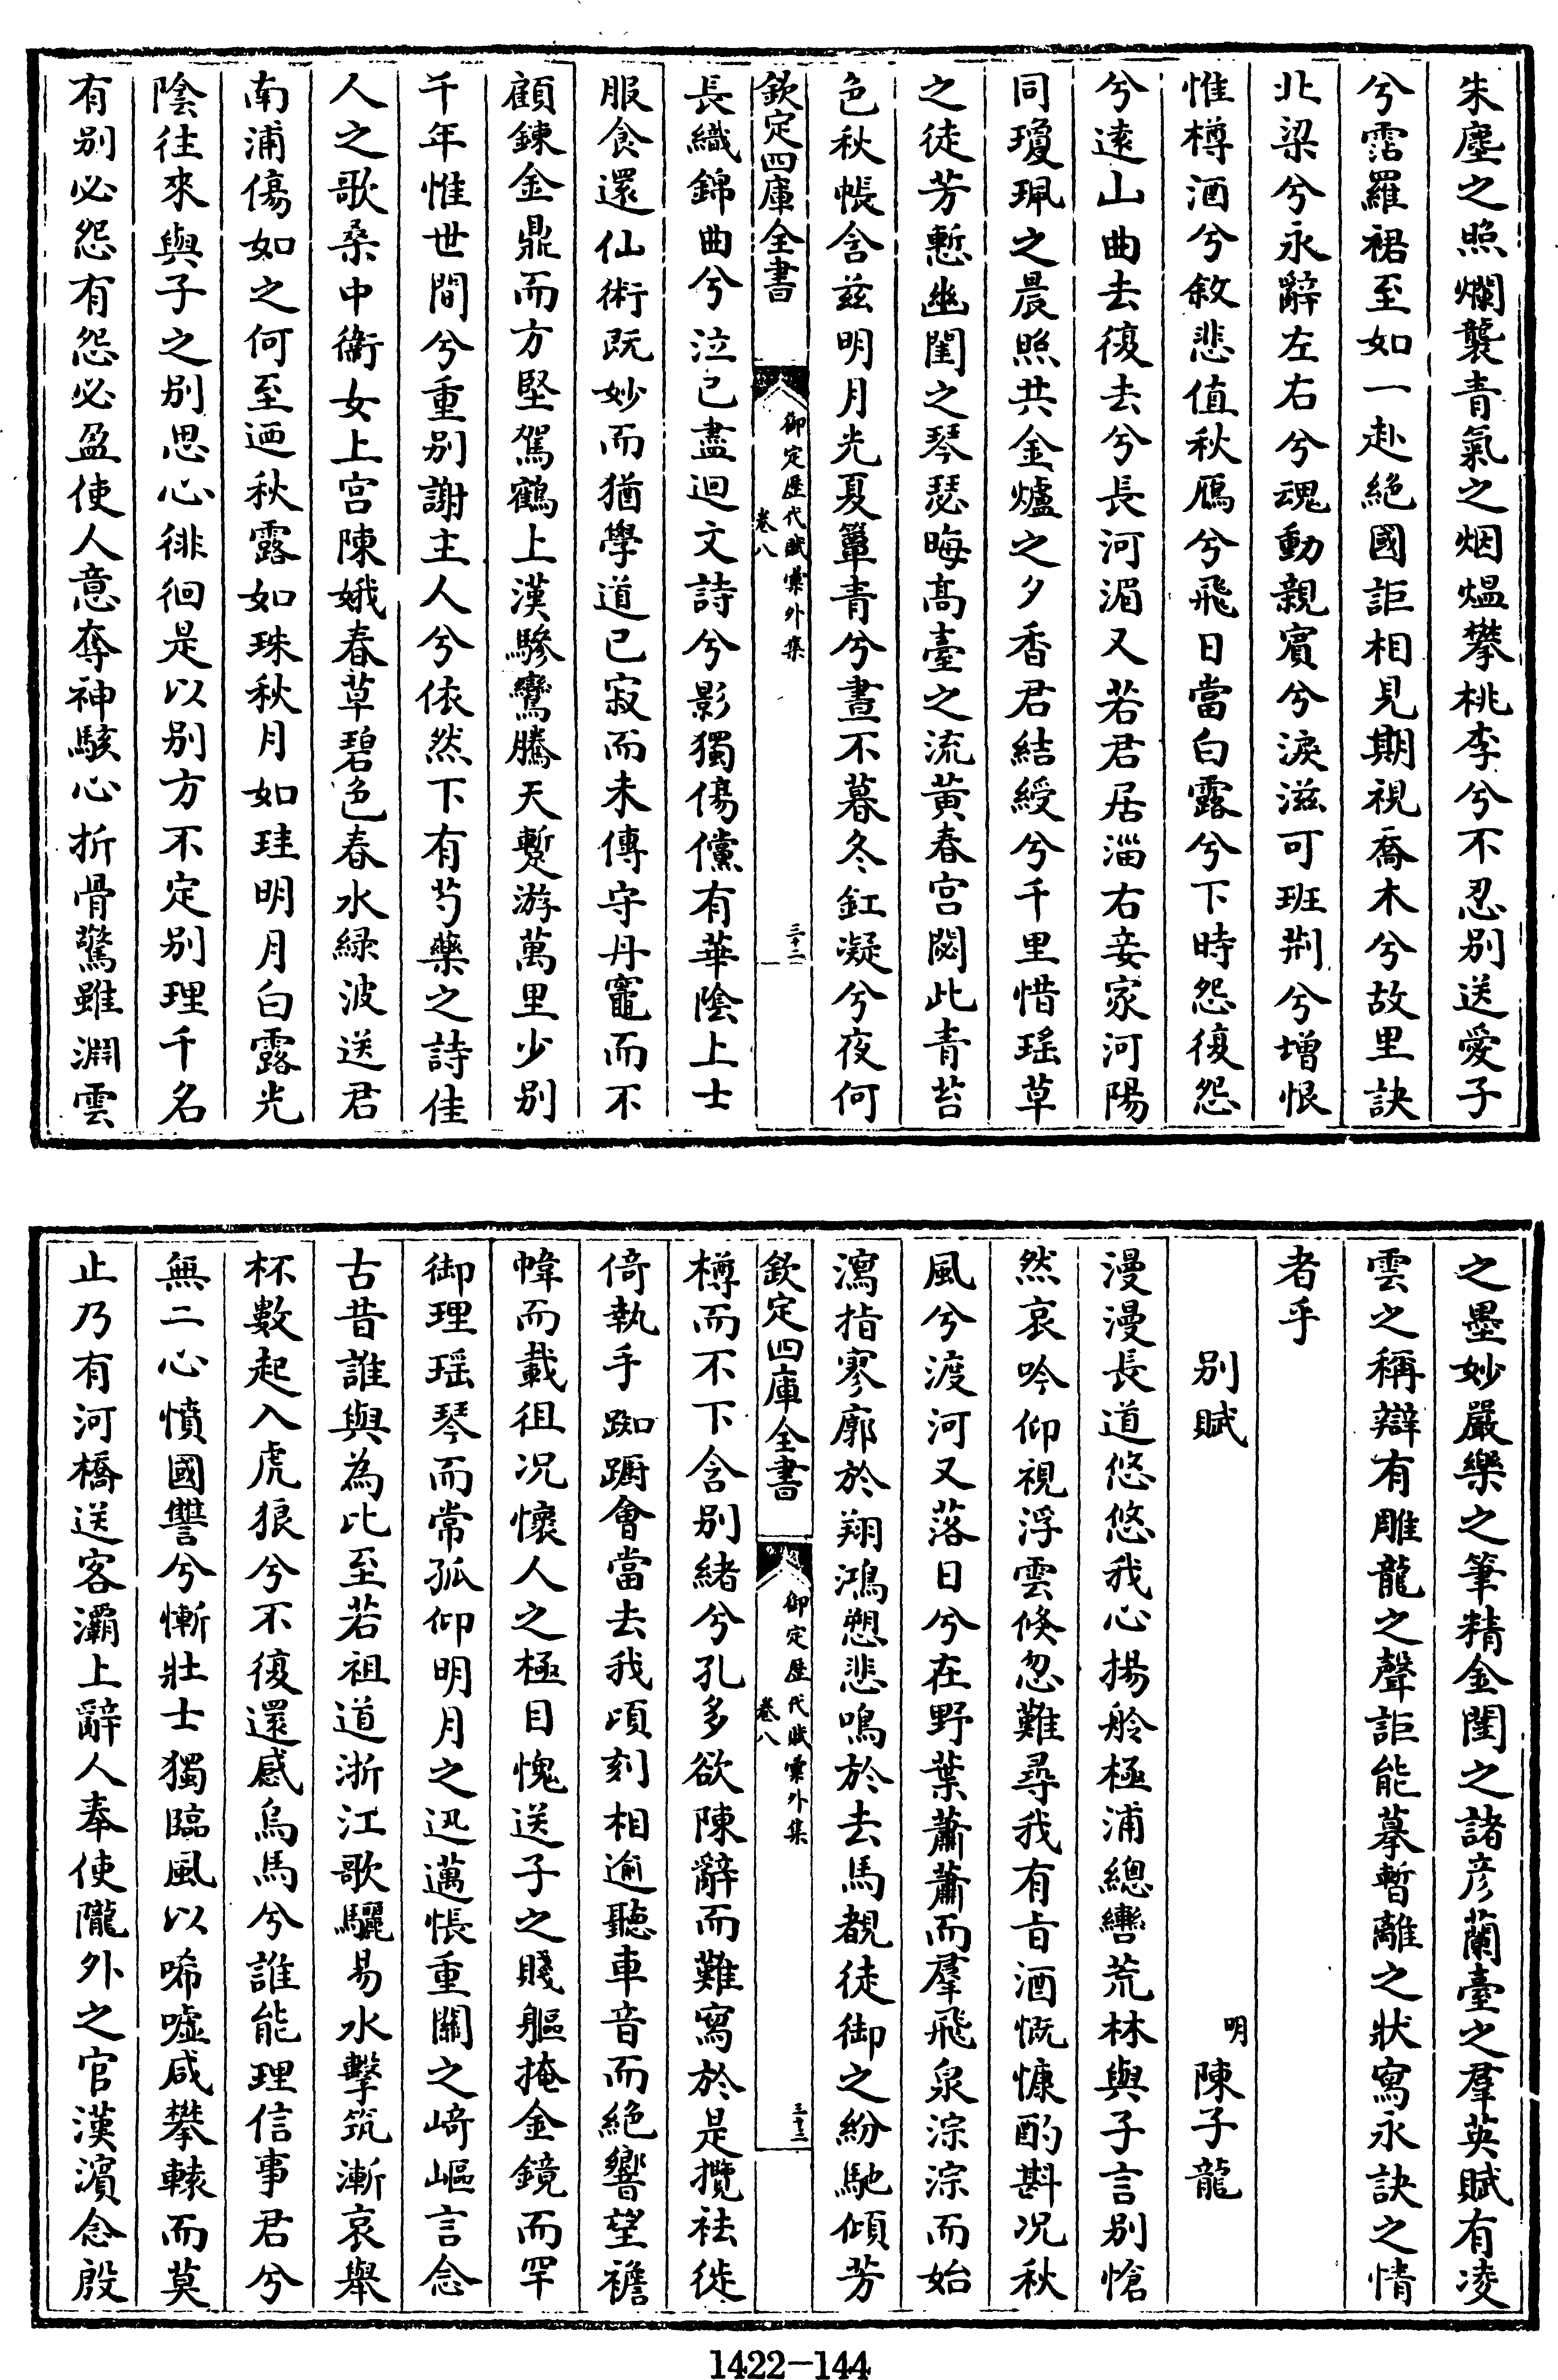 朱塵之照爛襲青氣之烟熅攀桃李兮不忍别送愛子
兮霑羅裙至如一赴絶國詎相見期視喬木兮故里訣
北梁兮永辭左右兮魂動親賓兮淚滋可班荆兮增恨
惟樽酒兮敘悲值秋鴈兮飛日當白露兮下時怨復怨
兮逺山曲去復去兮長河湄又若君居淄右妾家河陽
同瓊珮之晨照共金爐之夕香君結綬兮千里惜瑶草
之徒芳慙幽閨之琴瑟晦髙臺之流黄春宫閟此青苔
色秋帳含兹明月光夏簟青兮晝不暮冬釭凝兮夜何
欽定四庫全書
御定歴代賦彚外集
卷八
三十二
長織錦曲兮泣已盡迴文詩兮影獨傷儻有華陰上士
服食還仙術既妙而猶學道已寂而未傳守丹竈而不
顧鍊金鼎而方堅駕鶴上漢驂鸞騰天蹔游萬里少别
千年惟世間兮重别謝主人兮依然下有芍藥之詩佳
人之歌桑中衞女上宫陳娥春草碧色春水緑波送君
南浦傷如之何至迺秋露如珠秋月如珪明月白露光
陰徃來與子之别思心徘徊是以别方不定别理千名
有别必怨有怨必盈使人意奪神駭心折骨驚雖淵雲
之墨妙嚴樂之筆精金閨之諸彦蘭臺之羣英賦有凌
雲之稱辯有雕龍之聲詎能摹暫離之狀寫永訣之情
者乎
别賦
明
陳子龍
漫漫長道悠悠我心揚舲極浦總轡荒林與子言别愴
然哀吟仰視浮雲倏忽難尋我有㫖酒慨慷酌斟况秋
風兮渡河又落日兮在野葉蕭蕭而羣飛泉淙淙而始
瀉指寥廓於翔鴻愬悲鳴於去馬覩徒御之紛馳傾芳
欽定四庫全書
御定歴代賦彚外集
卷八
三十三
樽而不下含别緒兮孔多欲陳辭而難寫於是攬袪徙
倚執手踟蹰會當去我頃刻相逾聽車音而絶響望襜
幃而載徂况懷人之極目愧送子之賤軀掩金鏡而罕
御理瑶琴而常孤仰明月之迅邁悵重闗之﨑嶇言念
古昔誰與為比至若祖道浙江歌驪易水擊筑漸哀舉
杯數起入虎狼兮不復還感烏馬兮誰能理信事君兮
無二心憤國讐兮慚壯士獨臨風以唏噓咸攀轅而莫
止乃有河橋送客灞上辭人奉使隴外之官漢濱念殷
1422—144